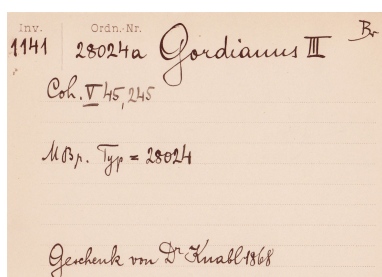 Inv. Ordn.-Nr.
1141 28024a Gordianus III Br
Coh. V 45, 245
MBr. Typ = 28024
Geschenk von Dr Knabl 1868